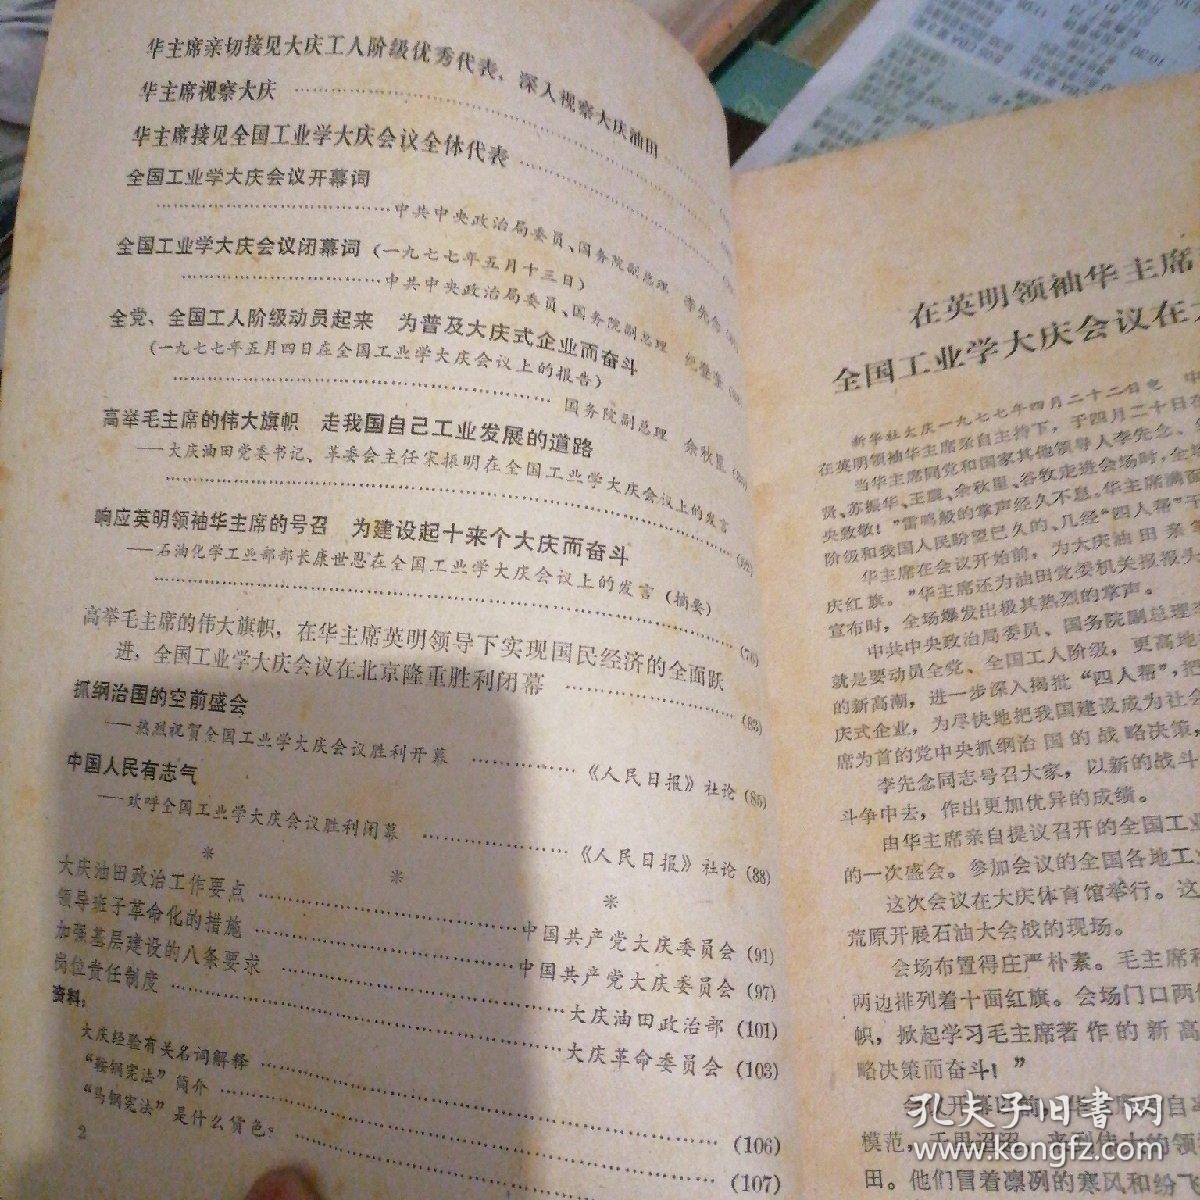 华主席亲切接见大庆工人阶级优秀代表，深入视察大庆油田
华主席视察大庆
华主席接见全国工业学大庆会议全体代表
全国工业学大庆会议开幕词
中共中央政治局委员、国务院副总理 李先念
全国工业学大庆会议闭幕词（一九七七年五月十三日）
中共中央政治局委员、国务院副总理 纪登奎
全党、全国工人阶级动员起来 为普及大庆式企业而奋斗
（一九七七年五月四日在全国工业学大庆会议上的报告）
国务院副总理 余秋里
高举毛主席的伟大旗帜 走我国自己工业发展的道路
——大庆油田党委书记、革委会主任宋振明在全国工业学大庆会议上的发言
响应英明领袖华主席的号召 为建设起十来个大庆而奋斗
——石油化学工业部部长康世恩在全国工业学大庆会议上的发言（摘要）
(76)
高举毛主席的伟大旗帜，在华主席英明领导下实现国民经济的全面跃
进，全国工业学大庆会议在北京隆重胜利闭幕 (83)
抓纲治国的空前盛会
——热烈祝贺全国工业学大庆会议胜利开幕 《人民日报》社论 (85)
中国人民有志气
——欢呼全国工业学大庆会议胜利闭幕 《人民日报》社论 (88)
* * *
大庆油田政治工作要点 中国共产党大庆委员会 (91)
领导班子革命化的措施 中国共产党大庆委员会 (97)
加强基层建设的八条要求 大庆油田政治部 (101)
岗位责任制度 大庆革命委员会 (103)
资料：
大庆经验有关名词解释 (106)
“鞍钢宪法”简介 (107)
“马钢宪法”是什么货色？
2
在英明领袖华主席
全国工业学大庆会议在
新华社大庆一九七七年四月二十二日电 中
在英明领袖华主席亲自主持下，于四月二十日在
当华主席同党和国家其他领导人李先念、
贤、苏振华、王震、余秋里、谷牧走进会场时，全场
央致敬！”雷鸣般的掌声经久不息。华主席满面
阶级和我国人民盼望已久的、几经“四人帮”干
华主席在会议开始前，为大庆油田亲
庆红旗。”华主席还为油田党委机关报报头
宣布时，全场爆发出极其热烈的掌声。
中共中央政治局委员、国务院副总理
就是要动员全党、全国工人阶级，更高地
的新高潮，进一步深入揭批“四人帮”，把
庆式企业，为尽快地把我国建设成为社会
席为首的党中央抓纲治国的战略决策，
李先念同志号召大家，以新的战斗
斗争中去，作出更加优异的成绩。
由华主席亲自提议召开的全国工业
的一次盛会。参加会议的全国各地工
这次会议在大庆体育馆举行。这
荒原开展石油大会战的现场。
会场布置得庄严朴素。毛主席和
两边排列着十面红旗。会场门口两
帜，掀起学习毛主席著作的新高
略决策而奋斗！”
会议开幕以前，华主席亲自来
模范，千里迢迢，来到伟大的领
田。他们冒着凛冽的寒风和纷飞
孔夫子旧书网
www.kongfz.com